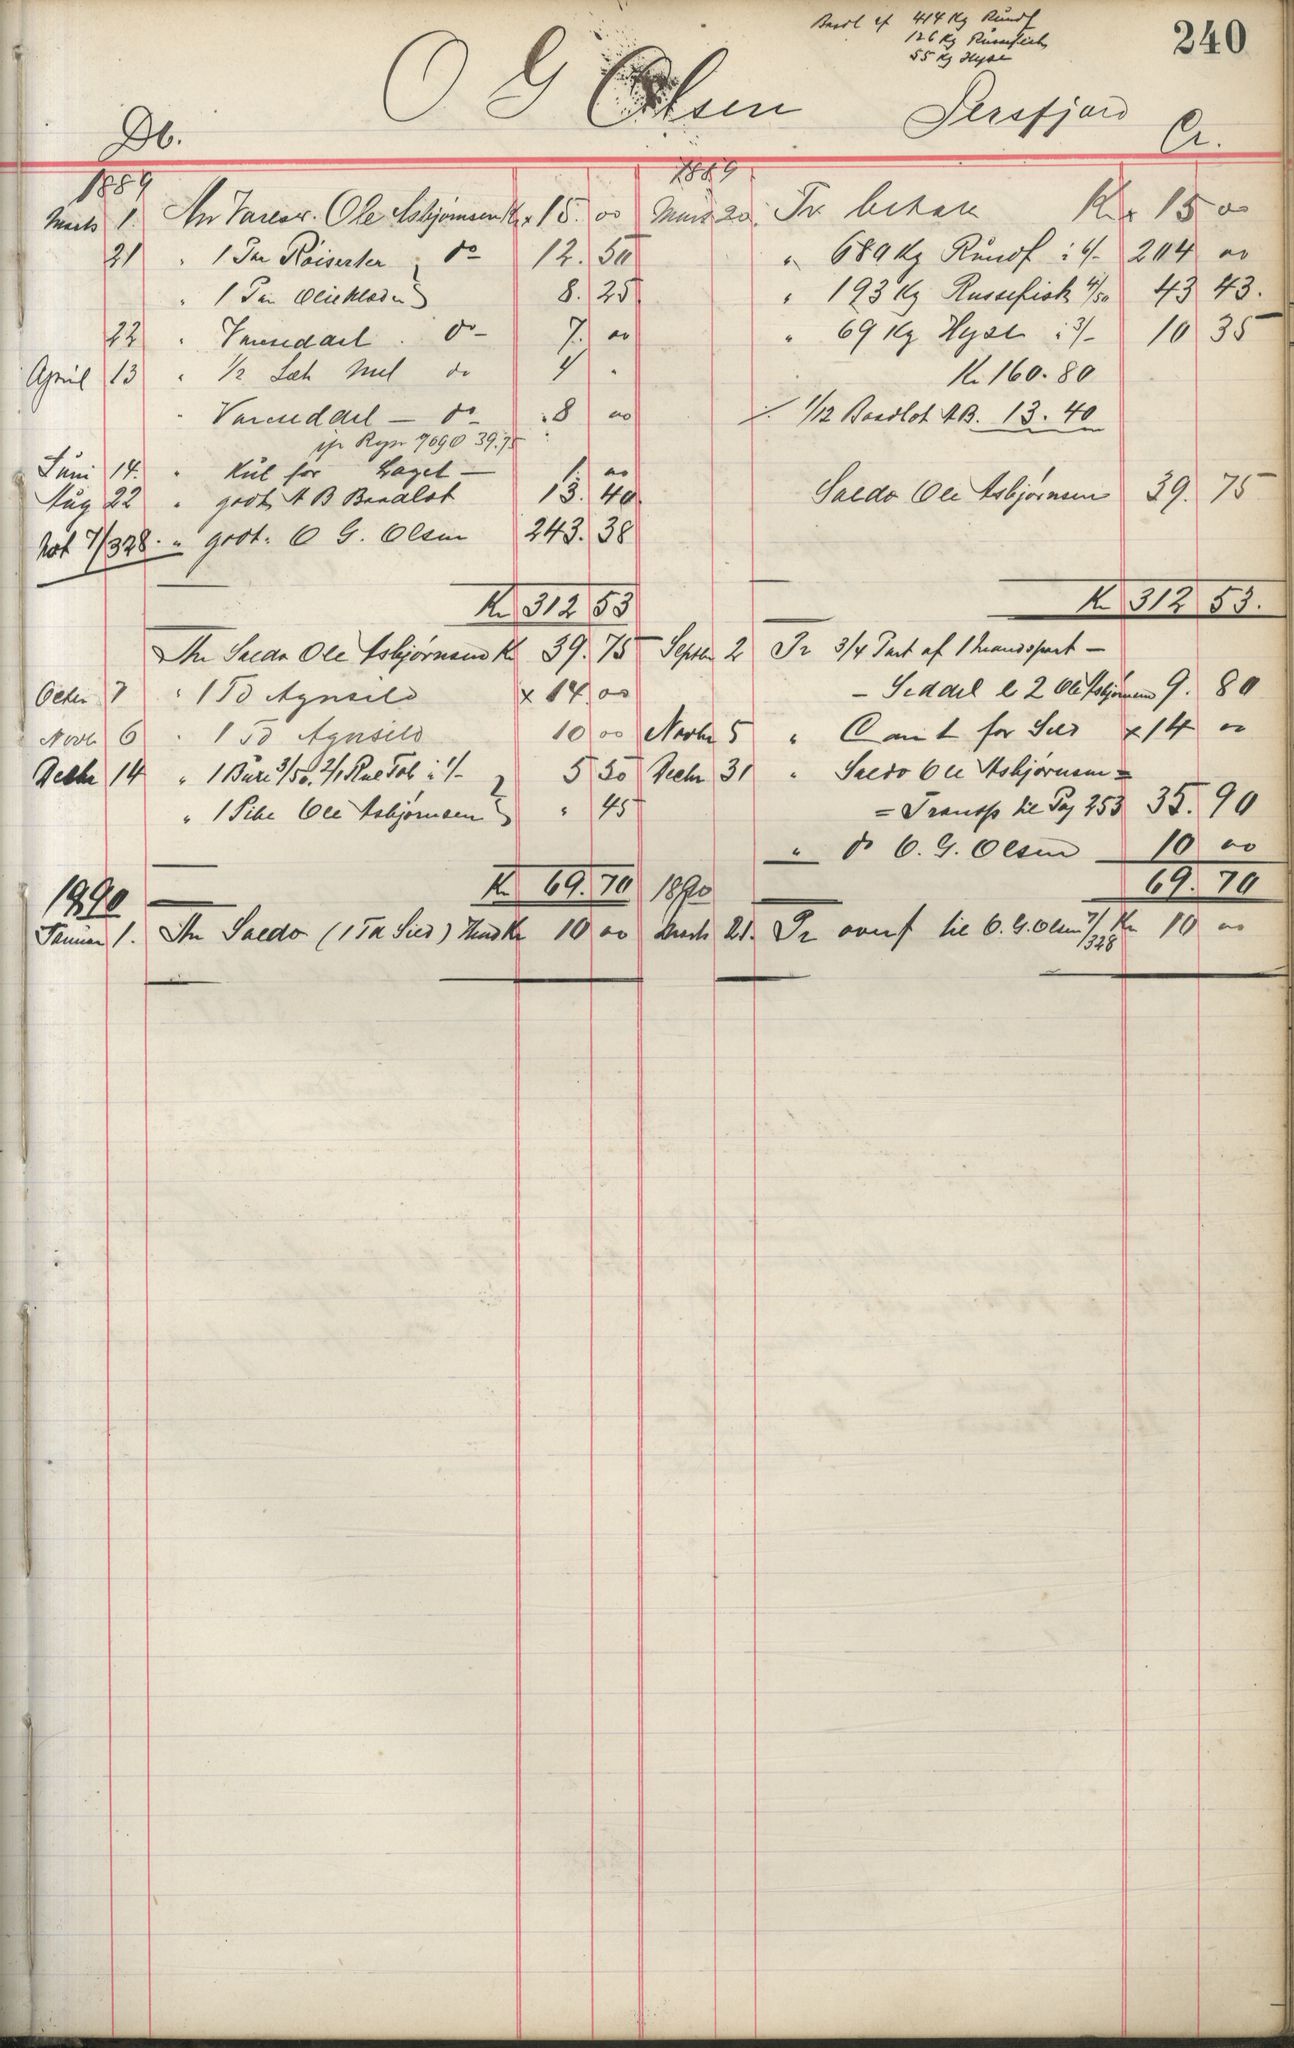 240
Baadl af 414 Kg Rundf
126 Kg Russefisk
55 Kg Hyse
O G Olsen Persfjord
Db. Cr.
1889
Marts 1. An Varesr. Ole Asbjørnsen Kr x 15. 00
21 " 1 Par Röiserter do 12. 50
" 1 Par Olieklæder 8. 25
22 " Vareseddel . do - 7. 00
April 13 " 1/2 Sæk Mel do 4 "
" Vareseddel - do - 8 00
39.75
Juni 14. " Kul for Laget - 1. 00
Aug 22 " godt A B Baadlot 13. 40
Not 7/328. " godt. O G. Olsen 243. 38
Kr 312 53
An Saldo Ole Asbjørnsen Kr 39. 75
Octbr 7 " 1 Td Agnsild x 14. 00
Novbr 6 " 1 Td Agnsild 10 00
Decbr 14 " 1 Buxe 3/50. 2/1 Rul Tob à 1/- 5 50
" 1 Pibe Ole Asbjørnsen " 45
Kr 69. 70
1890
Januar 1. An Saldo (1 Td Sild) Kr 10 00
1889
Marts 20. Pr betalt Kr x 15 00
" 689 Kg Rundf à 6/- 204 00
" 193 Kg Russefisk 4/50 43 43.
" 69 Kg Hyse à 3/- 10 35
Kr 160. 80
1/12 Baadlot AB. 13. 40
Saldo Ole Asbjørnsen 39. 75
Kr 312 53.
Septbr 2 Pr 3/4 Part af 1 Mandspart -
- Seddel 2 Ole Asbjørnsen 9. 80
Novbr 5 " Cont for Sild x 14 00
Decbr 31 " Saldo Ole Asbjørnsen =
= Transp til Pag 253 35. 90
" do O. G. Olsen 10 00
69. 70
1890
Marts 21. Pr overf til O. G. Olsen 7/328 Kr 10 00